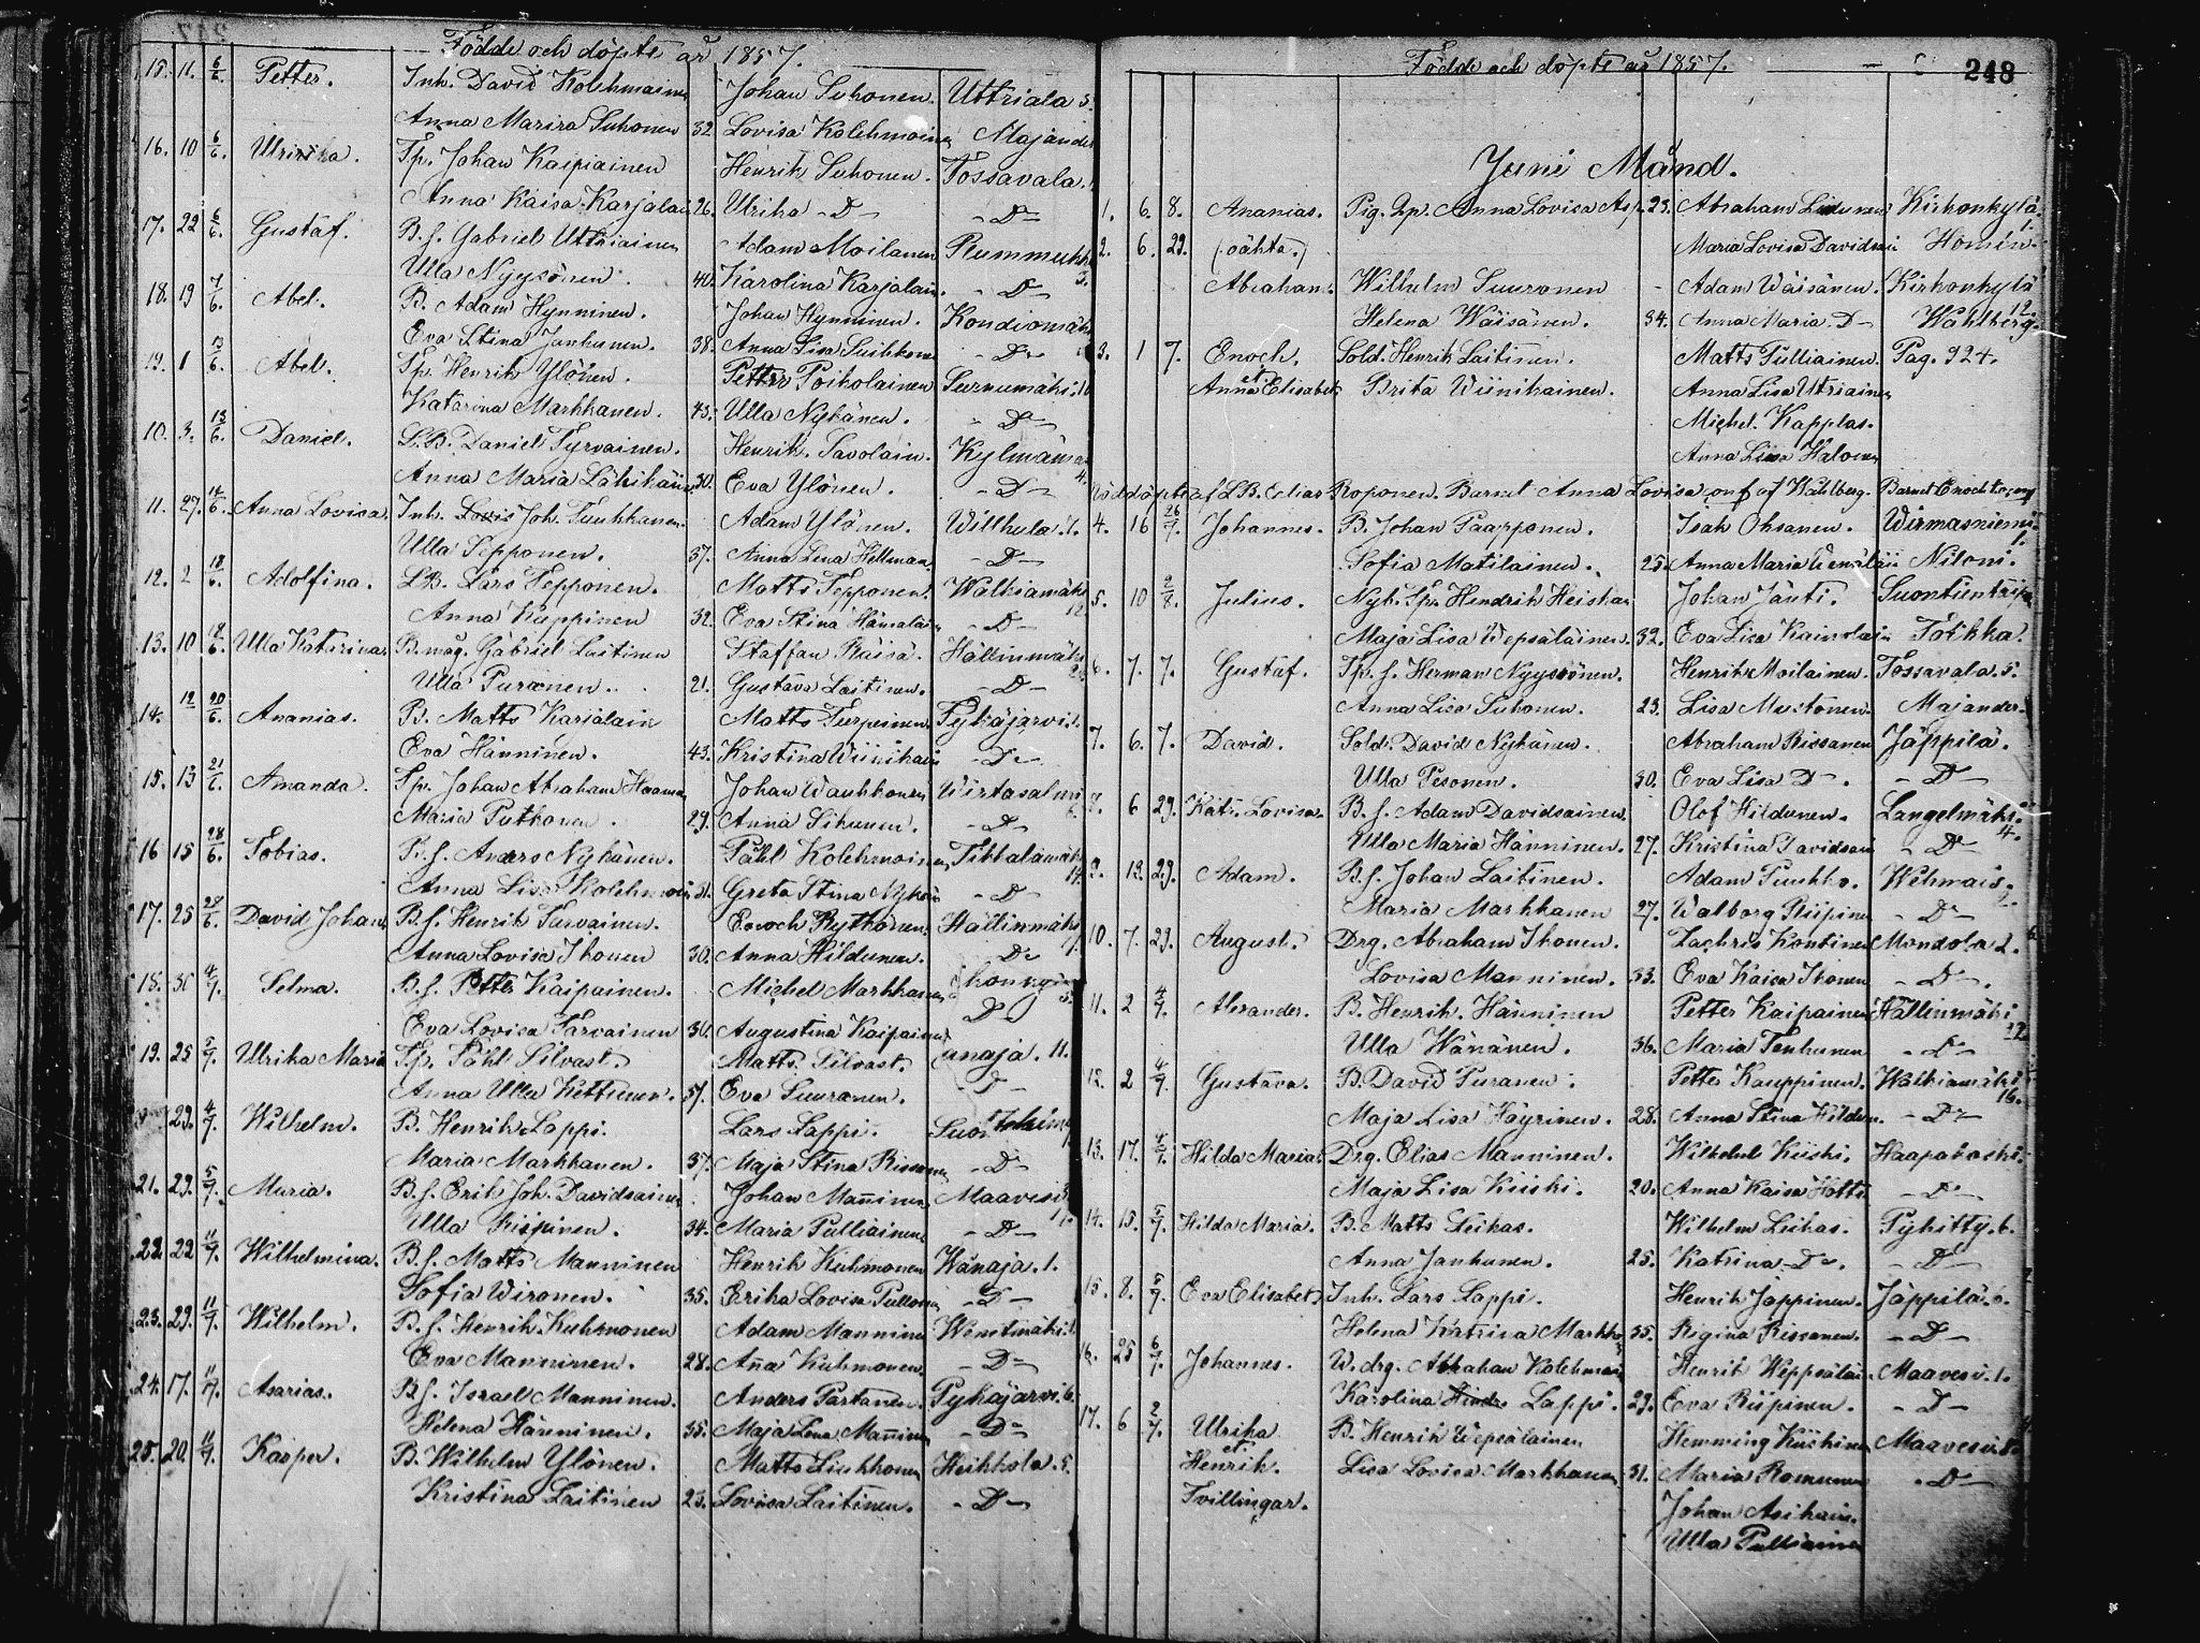 Födde och döpte år 1857.
15. 11. 6/6. Petter. Inh. David Kolehmainen Johan Suhonen. Uttriala 5.
Anna Maria Suhonen 32. Lovisa Kolehmainen Majander
16. 10 6/6. Ulrika. Tp. Johan Kaipiainen Henrik Suhonen. Tossavala.
Anna Kaisa Karjalai 26. Ulrika -D- -D-
17. 22 6/6. Gustaf. B.f. Gabriel Uttriainen Adam Moilanen
Ulla Nyysönen. 40. Karolina Karjalain. -D- 3.
18. 19 7/6. Abel. B. Adam Hynninen. Johan Hynninen. Kondiomäk
Eva Stina Janhunen. 38. Anna Lisa Suihkone -D-
19. 1 13/6. Abel. Tp. Henrik Ylönen. Petter Poikolainen Surnumäki. 10
Katarina Markkanen. 43. Ulla Nykänen. -D-
10. 3. 13/6. Daniel. L.B. Daniel Tyrvainen. Henrik Savolain. Kylmäma
Anna Maria 30. Eva Ylönen. -D- 4.
11. 27. 14/6. Anna Lovisa. Inh. Joh. Tuukkanen. Adam Ylönen. Willhula. 1.
Ulla Sepponen. 37. Anna Lena Hellman. -D-
12. 2 18/6. Adolfina. L.B. Lars Tepponen. Matts Tepponen. Walkiamäki
Anna Kuppinen 32. Eva Stina -D- 12.
13. 10 18/6. Ulla Katarina. B.måg. Gabriel Laitinen Staffan Räisä. Hällinmäki
Ulla Puranen. 21. Gustava Laitinen. -D-
14. 12 20/6. Ananias. B. Matts Karjalain Matts Turpeinen. Pykäjarvi. 1.
Eva Hänninen. 43. Kristina Wiinikai -D-
15. 13 21/6. Amanda. Tp. Johan Abraham Haaman Johan Wauhkonen Wirtasalmi
Maria Putkonen. 29. Anna Sikanen. -D-
16 15 28/6. Tobias. B.f. Anders Nykänen. Påhl Kolehmainen, Tihkalamäki
Anna Lisa Kolehmai 31. Greta Stina Nykän -D- 14.
17. 25 28/6. David Johan B.f. Henrik Tarvainen. Enoch Rytkönen. Hällinmäki
Anna Lovisa Ikonen 30. Anna Hildunen. -D-
18. 31 4/7. Selma. B.f. Petter Kaipainen. Michel Markkanen
Eva Lovisa Tarvainen 30. Augustina Kaipainen D
19. 25 5/7. Ulrika Maria Tp. Påhl Silvast. Matts Silvast. 11.
Anna Ulla Kettunen. 37. Eva Suuranen. -D-
29. 4/7. Wilhelm. B. Henrik Lappi. Lars Lappi.
Maria Markkanen. 37. Maja Stina Rissanen -D-
21. 29. 5/7. Maria. B.f. Erik Joh. Davidsainen. Johan Mañinen Maavesi
Ulla Riipinen. 34. Maria Pulliainen. -D-
22. 22 11/7. Wilhelmina. B.f. Matts Manninen Henrik Kuhmonen Wänaja. 1.
Sofia Wironen. 35. Erika Lovisa -D-
23. 29. 11/7. Wilhelm. B.f. Henrik Kuhmonen Adam Mannine
Eva Manninen. 28. Aña Kuhmonen. -D-
24. 17. 11/7. Asarias. B.f. Israel Manninen. Anders Partanen. Pykäjärvi. 6.
Helena Hänninen. 35. Maja Lena Mañinen -D-
25. 20. 11/7. Kasper. B. Wilhelm Ylönen. Matts Liukkonen Heikkola. 5.
Kristina Laitinen 23. Lovisa Laitinen. -D-
Födde och döpte år 1857. 248
Juni Månd.
1. 6. 8. Ananias. Pig. Anna Lovisa 23. Abraham Kirkonkylä
2. 6. 29. (oäkta.) Maria Lovisa Davidsai Homin.
Abraham. Wilhelm Suuronen - Adam Wäisänen. Kirkonkylä
Helena Wäisänen. 34. Anna Maria D- Wahlberg. 12.
3. 1 7. Enoch. Sold. Henrik Laitinen. Matts Pulliainen. Pag. 924.
et Anna Elisabet Brita Wiinikainen. Anna Lisa Utriainen
Michel. Kapplas.
Anna Lisa Halonen
Nöddöpte af L.B. Elias Roponen. Barnet Anna Lovisa conf af Wahlberg. Barnet Enoch
4. 16 26/7. Johannes. B. Johan Paapponen. Isak Oksanen. Wirmasniemi
Sofia Matilainen. 25. Anna Maria Niloni.
5. 10 2/8. Julius. Nyb. Tp. Hendrik Heiskan Johan Jänti. Suontientaip
Maja Lisa Wepsäläinen. 32. Eva Lisa Kainulain
6. 7. 7. Gustaf. Tp. f. Herman Nyyssönen. Henrik Moilainen. Tossavala. 5.
Anna Lisa Suhonen. 23. Lisa Mustonen. Majander.
7. 6. 7. David. Sold. David Nykänen. Abraham Rissanen Jäppilä.
Ulla Pesonen. 30. Eva Lisa D-. -D-
6 29. Kätr. Lovisa. B.f. Adam Davidsainen. Olof Hildunen. Längelmäki.
Ulla Maria Hänninen. 27. Kristina Davidsain -D- 4.
9. 12. 29. Adam. B.f. Johan Laitinen. Adam Puukko. Wehmais.
Maria Markkanen 27. Walborg Riipinen -D-
10. 7. 29. August. Drg. Abraham Ikonen. Zachris Kontinen Mondola 2.
Lovisa Manninen. 33. Eva Kaisa Ikonen -D-.
11. 2 4/7. Alexander. B. Henrik Hänninen Petter Kaipainen Hällinmäki
Ulla Wänänen. 36. Maria Tenhunen -D-
12. 2 4/7. Gustava. B. David Puranen. Petter Kauppinen. Walkiamäki
Maja Lisa Häyrinen. 28. Anna Stina Hildun. -D- 16.
13. 17. 4/7. Hilda Maria. Drg. Elias Manninen. Wilhelm Kiiski. Haapakoski.
Maja Lisa Kiiski. 20. Anna Kaisa -D-
14. 15. 5/7. Hilda Maria. B. Matts Leikas. Wilhelm Leikas. Pykitty. 6.
Anna Janhunen. 25. Katrina -D-. -D-
15. 8. 5/7. Eva Elisabet. Inh. Lars Lappi. Henrik Jäppinen. Jäppilä.
Helena Katrina Markka 35. Regina Rissanen. -D-
16. 25 6/7. Johannes. W. drg. Abraham Kolehmai Henrik Weppsäläi. Maavesi. 1.
Karolina Lappi. 29. Eva Riipinen. -D-
17. 6 2/7. Ulrika B. Henrik Wepsäläinen Hemming Kuhinen Maavesi 8.
et Henrik. Lisa Lovisa Markkanen 31. Maria Romunen -D-
Tvillingar. Johan Asikain.
Ulla Pulliainen